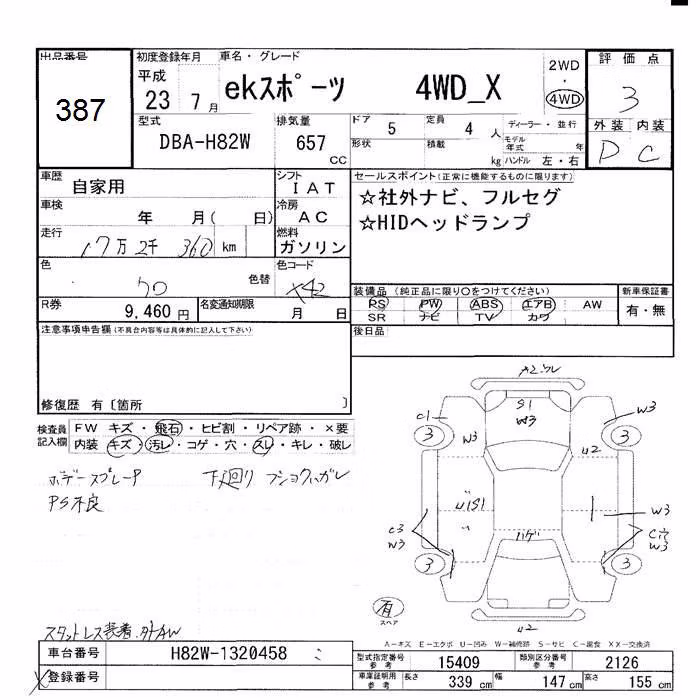 出品番号
387
初度登録年月
平成
23 7月
車名・グレード
ekスポーツ 4WD_X
2WD
・
4WD
評価点
3
外装 内装
D C
型式
DBA-H82W
排気量
657
CC
ドア 5
形状
定員 4 人
積載 kg
ディーラー・並行
モデル年式 年
ハンドル 左・右
車歴 自家用
シフト IAT
車検 年 月( 日)
冷房 AC
走行 17万2千360 km
燃料 ガソリン
色 クロ 色替
色コード X42
R券 9,460 円
名変通知期限 月 日
セールスポイント(正常に機能するものに限ります)
☆社外ナビ、フルセグ
☆HIDヘッドランプ
装備品 (純正品に限り〇をつけてください)
PS PW ABS エアB AW
SR ナビ TV カワ
新車保証書
有・無
後日品
注意事項申告欄(不具合内容等は具体的に記入して下さい)
修復歴 有〔箇所 〕
検査員記入欄
FW キズ・飛石・ヒビ割・リペア跡・×要
内装 キズ・汚レ・コゲ・穴・スレ・キレ・破レ
ボデースプレーP 下廻り ブショクハガレ
PS不良
スタットレス装着.外AW
A2.ワレ
C1
S1
W3
W3
3
3
W3
U2
U1S1
W3
C3
W3
ハゲ
C穴
W3
3
3
有
スペア
U2
A-キズ E-エクボ U-凹み W-補修跡 S-サビ C-腐食 XX-交換済
車台番号 H82W-1320458
登録番号
型式指定番号 参考 15409
類別区分番号 参考 2126
車庫証明用 参考 長さ 339 cm 幅 147 cm 高さ 155 cm